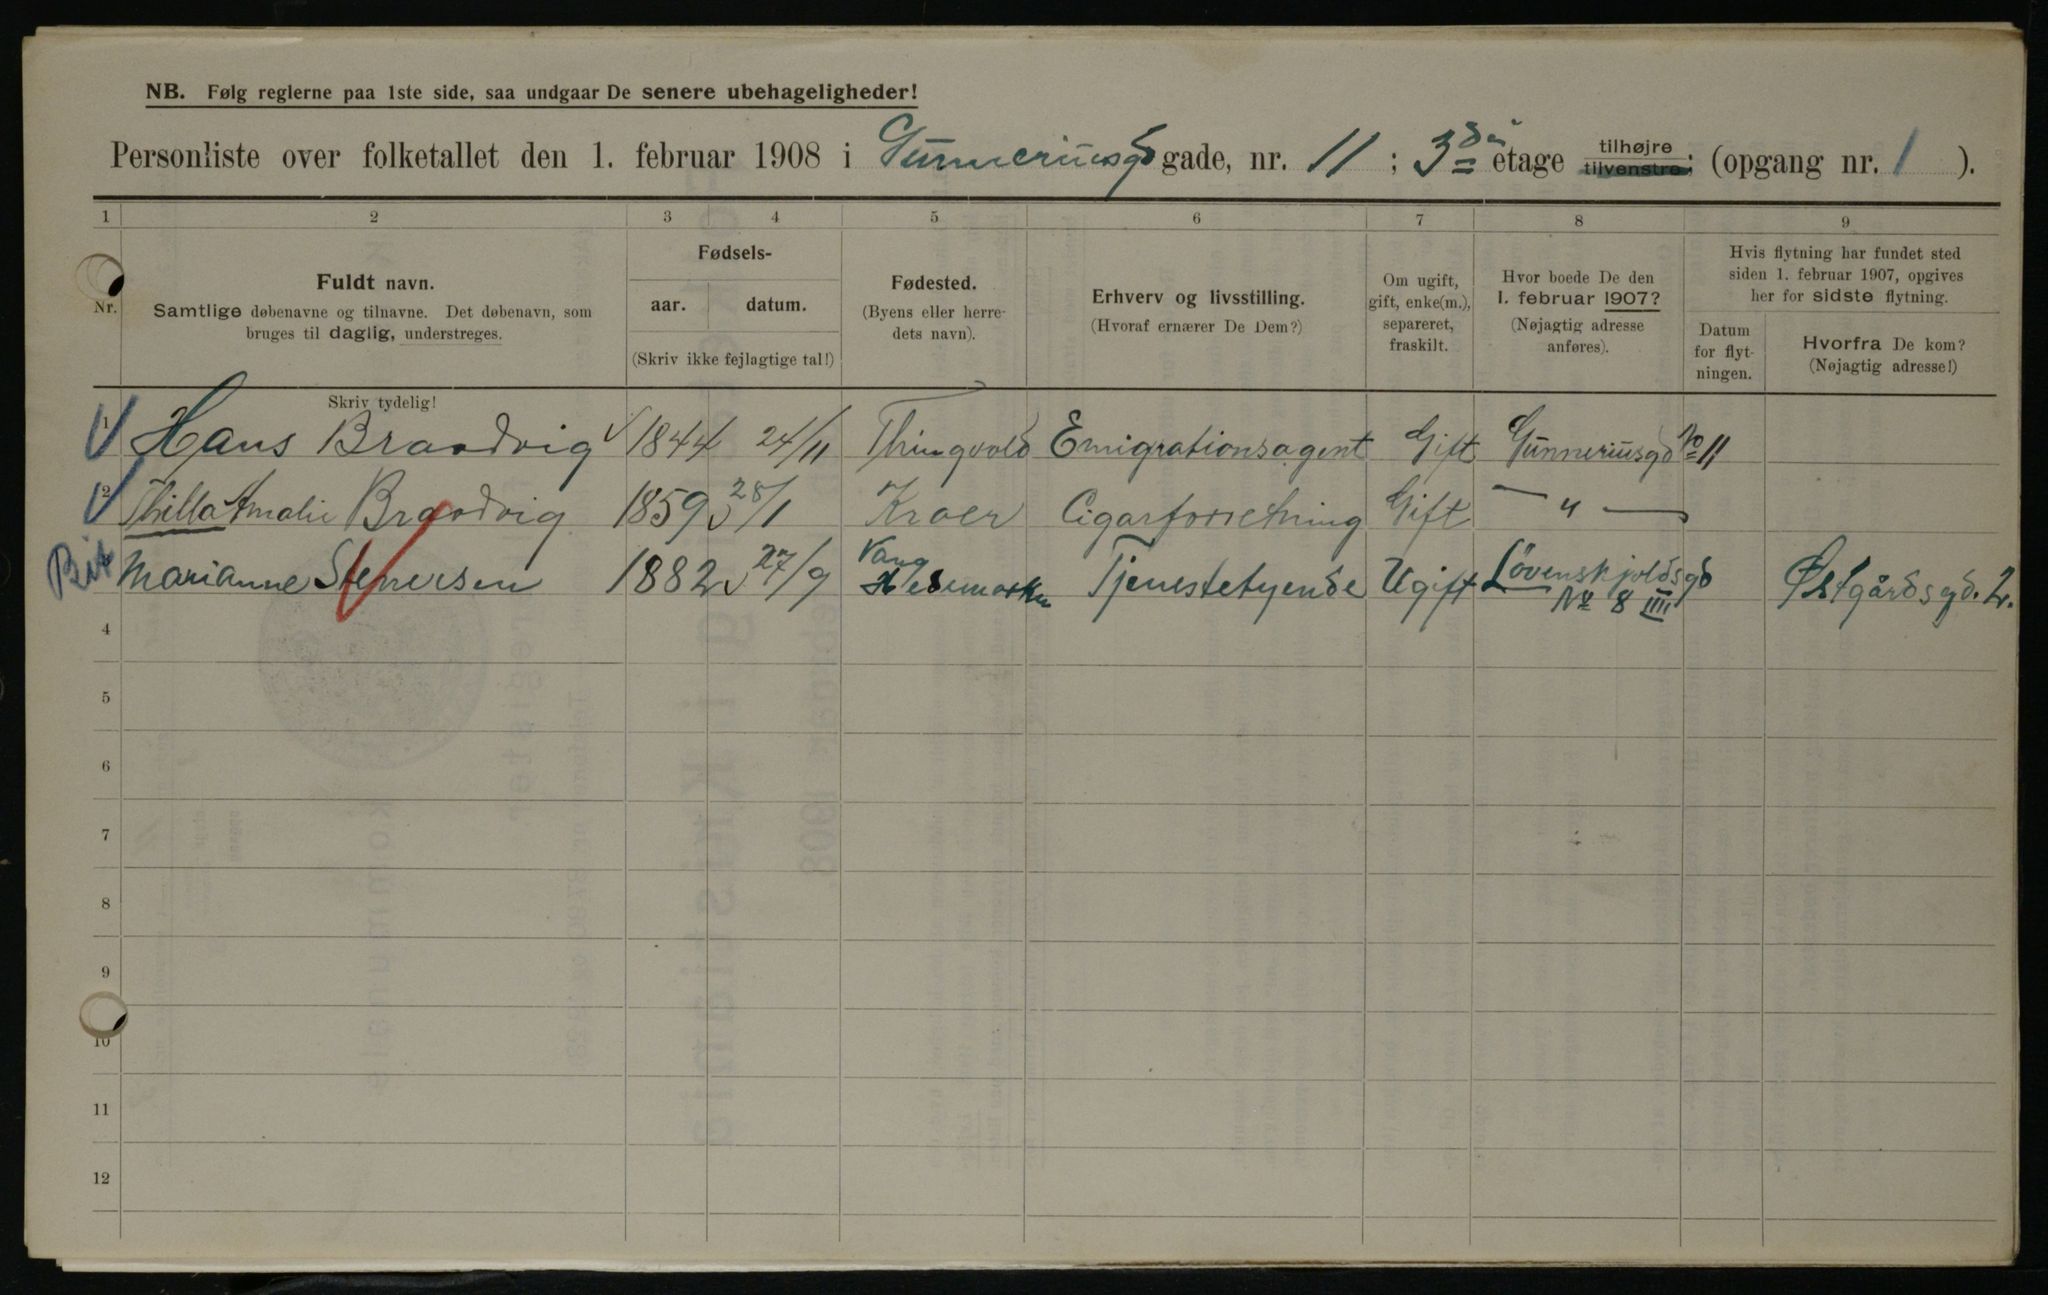 NB. Følg reglerne paa 1ste side, saa undgaar De senere ubehageligheder!
Personliste over folketallet den 1. februar 1908 i Gunneriusgd gade, nr. 11; 3die etage tilhøjre tilvenstre; (opgang nr. 1 ).
1 2 3 4 5 6 7 8 9
Nr.
Fuldt navn.
Samtlige døbenavne og tilnavne. Det døbenavn, som
bruges til daglig, understreges.
Skriv tydelig!
Fødsels-
aar. datum.
(Skriv ikke fejlagtige tal!)
Fødested.
(Byens eller herre-
dets navn).
Erhverv og livsstilling.
(Hvoraf ernærer De Dem?)
Om ugift,
gift, enke(m.),
separeret,
fraskilt.
Hvor boede De den
1. februar 1907?
(Nøjagtig adresse
anføres).
Hvis flytning har fundet sted
siden 1. februar 1907, opgives
her for sidste flytning.
Datum
for flyt-
ningen.
Hvorfra De kom?
(Nøjagtig adresse!)
1 Hans Braadvig 1844 24/11 Thingvold Emigrationsagent Gift Gunneriusgd No 11
2 Thilla Amalie Braadvig 1859 28/1 Kroer Cigarforretning Gift — " —
Marianne Stenersen 1882 27/9 Vang Hedemarken Tjenestetyende Ugift Lövenskjoldsgd No 8 IIII Østgårdsgd. 2.
4
5
6
7
8
9
10
11
12